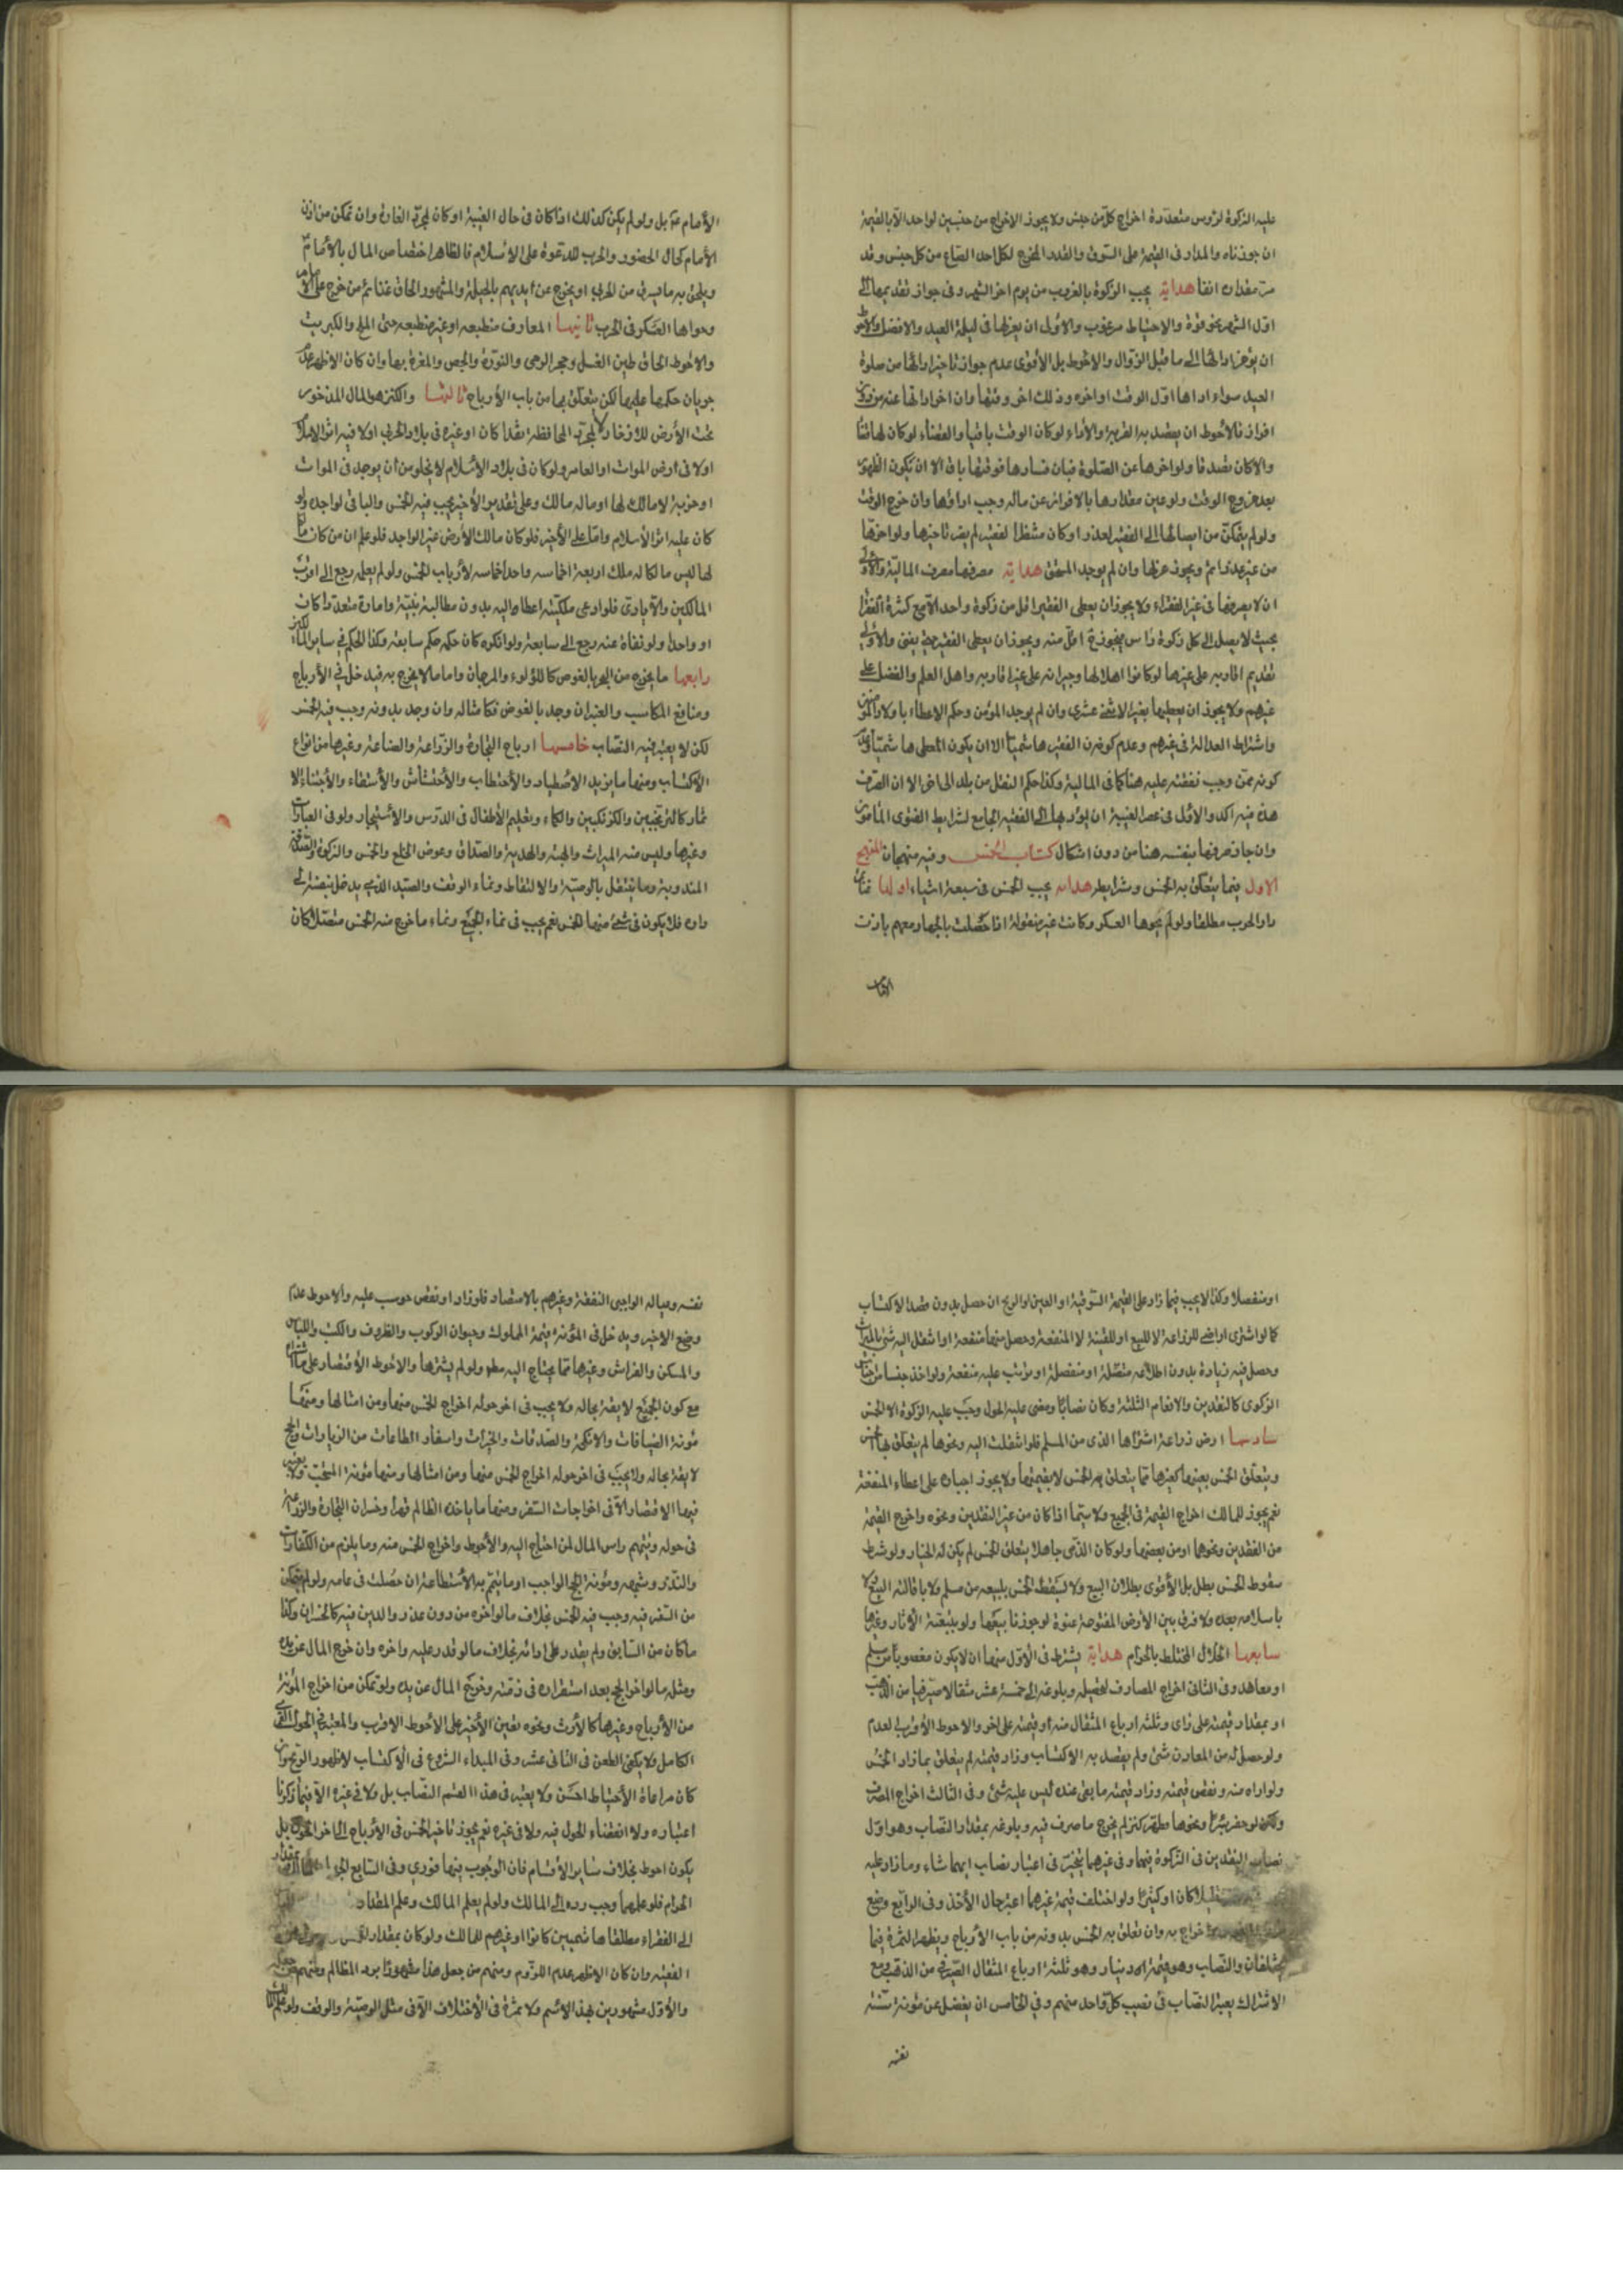 عليه الزكوة لرؤس متعددة اخراج كل من جنس ولا يجوز الاخراج من جنسين لواحد الا بالقيمة
ان جوزناه والمدار فى القيمة على السوق والقدر المخرج لكل احد الصاع من كل جنس وقد
مر مقداره انفا هداية يجب الزكوة بالغروب من يوم اخر الشهر وفى جواز تقديمها الى
اول الشهر نحو قوة والاحتياط مرغوب والاولى ان يعزلها فى ليلة العيد والافضل والاحوط
ان يؤخر ادائها الى ما قبل الزوال والاحوط بل الاقوى عدم جواز تاخير ادائها من صلوة
العيد سواء اداها اول الوقت او اخره وذلك اخر وقتها وان اخر ادائها عنه من دون
افراز فالاحوط ان يقصد به القربة والاداء لو كان الوقت باقيا والقضاء لو كان لها فائتا
والا كان تصدقا ولو اخرها عن الصلوة فبان فسادها فوقتها باق الا ان يكون الظهور
بعد خروج الوقت ولو عين مقدارها بالافراز عن ماله وجب اداؤها وان خرج الوقت
ولو لم يتمكن من ايصالها الى الفقير لعذر او كان منتظرا لفقير لم يضر تاخيرها ولو اخرها
من غير عذر اثم ويجوز عزلها وان لم يوجد المستحق هداية مصرفها مصرف المالية والاولى
ان لا يصرفها فى غير الفقراء ولا يجوز ان يعطى الفقير اقل من زكوة واحد الا مع كثرة الفقراء
بحيث لا يصل الى كل زكوة راس فيجوز ح اقل منه ويجوز ان يعطى الفقير حتى يغنى والاولى
تقديم اقاربه على غيرها لو كانوا اهلا لها وجيرانه على غير اقاربه واهل العلم والفضل على
غيرهم ولا يجوز ان يعطيها بغير الاثنى عشرى وان لم يوجد المؤمن وحكم الاعطاء باولاد المؤمنين
واشتراط العدالة فى غيرهم وعدم كون الفقير هاشميا الا ان يكون المعطى هاشميا وعدم
كونه ممن وجب نفقته عليه هنا كما فى المالية وكذا حكم النقل من بلد الى اخر الا ان الصرف
هذه فيه اكد والاولى فى عصر الغيبة ان يؤديها الى الفقيه الجامع لشرايط الفتوى المامون
وان جاز صرفها بنفسه هنا من دون اشكال كتاب الخمس وفيه منهجان المنهج
الاول فيما يتعلق به الخمس وشرايطه هداية يجب الخمس فى سبعة اشياء اولها غنايم
دار الحرب مطلقا ولو لم يحوها العسكر وكانت غير منقولة اذا حصلت بالجهاد معهم باذن
الامام
الأمام ع بل ولو لم يكن كذلك اذا كان فى حال الغيبة او كان لمجرد الغارة وان تمكن من اذن
الأمام كحال الحضور والحرب للدعوة على الاسلام فالظاهر اختصاص المال بالأمام
ويلحق به ما يسرق من الحربى او يخرج من ايديهم بالحيلة والمشهور الحاق غنائم من خرج على الامام
وحواها العسكر فى الحرب ثانيها المعادن منطبعه او غير منطبعه حتى الملح والكبريت
والاحوط الحاق طين الغسل وحجر الرحى والنورة والجص والمغرة بها وان كان الاظهر عدم
جريان حكمها عليها لكن يتعلق بها من باب الأرباح ثالثها والكنز هو المال المذخور
تحت الأرض للذخار لا لمجرد المحافظة نقدا كان او غيره فى بلاد الحرب اولا فيه اثر الاسلام
اولا فى ارض الموات او العامر ولو كان فى بلاد الأسلام لا يخلو من ان يوجد فى الموات
او خربة لا مالك لها او ما له مالك وعلى تقدير الأخير يجب فيه الخمس والباقى لواجده ولو
كان عليه اثر الأسلام واما على الأخير فلو كان مالك الأرض غير الواجد فلو علم ان من كان
لها ليس مالكا له ملك اربعة اخماسه واحد اخماسه لأرباب الخمس ولو لم يعلم رجع الى اقرب
المالكين والا يادى فلو ادعى ملكيته اعطاه اليه بدون مطالبة بينة وامارة متعددا كان
او واحدا ولو نفاه عنه رجع الى سابقه ولو انكره كان حكمه حكم سابقه وكذا الحكم فى ساير
رابعها ما يخرج من البحر بالغوص كاللؤلوء والمرجان واما ما لا يخرج به فيدخل فى الأرباح
ومنافع المكاسب والعنبر ان وجد بالغوص فكامثاله وان وجد بدونه وجب فيه الخمس
لكن لا يعتبر فيه النصاب خامسها ارباح التجارة والزراعة والصناعة وغيرها من انواع
الأكتساب ومنها ما يزيد الاصطياد والأحتطاب والأحتشاش والأستقاء والأجتناء للا
ثمار كالترنجبين والكزنكبين والكماء وتعليم الأطفال فى الدرس والأستيجار ولو فى العبادات
وغيرها وليس منه الميراث والهبة والهدية والصداق وعوض الخلع والخمس والزكوة والصدقة
المندوبة وما ينتقل بالوصية والالتقاط ونماء الوقف والصيد الذى يدخل بنفسه الى
داره فلا يكون فى شئ منها الخمس نعم يجب فى نماء الجميع ونماء ما خرج منه الخمس متصلا كان
او منفصلا وكذا لا يجب فيما زاد على القيمة السوقية او العين او الربح ان حصل بدون قصد الاكتساب
كما لو اشترى اراضى للزراعة لا للبيع او للقنية لا المنفعة وحصل منها منفعة او انتقل اليه شئ بالميراث
وحصل فيه زيادة بدون اطلاعه متصلة او منفصلة او ترتب عليه منفعة ولو اخذ جنسا من جنس
الزكوى كالنقدين والانعام الثلثة وكان نصابا ومضى عليه الحول وجب عليه الزكوة الا الخمس
سادسها ارض زراعة اشتراها الذمى من المسلم فلو انتقلت اليه ونحوها لم يتعلق بها الخمس
ويتعلق الخمس بعينها كغيرها مما يتعلق به الخمس لا بقيمتها ولا يجوز اجباره على اعطاء المنفعة
نعم يجوز للمالك اخراج القيمة فى الجميع ولا سيما اذا كان من غير النقدين ونحوه واخرج القيمة
من النقدين ونحوهما او من بعضها ولو كان الذمى جاهلا بتعلق الخمس لم يكن له الخيار ولو شرط
سقوط الخمس بطل بل الأقوى بطلان البيع ولا يسقط الخمس ببيعه من مسلم ولا باقالة البيع ولا
باسلامه بعده ولا فرق بين الأرض المفتوحة عنوة لو جوزنا بيعها ولو بتبعية الأثار وغيرها
سابعها الحلال المختلط بالحرام هداية يشترط فى الأول منها ان لا يكون مغصوبا من مسلم
او معاهد وفى الثانى اخراج المصارف لتحصيله وبلوغه الى خمسة عشر مثقالا صيرفيا من الذهب
او بمقدار قيمته على راى وثلثه ارباع المثقال منه او قيمته على اخر والاحوط الأقرب لعدم
ولو حصل له من المعادن شئ ولم يقصد به الاكتساب وزاد قيمته لم يتعلق بما زاد الخمس
ولو اداه منه ونقص قيمته وزاد قيمته ما بقى عنده ليس عليه شئ وفى الثالث اخراج المصرف
ولكن لو حفر بئرا ونحوها فظهر كنز لم يخرج ما صرف فيه وبلوغه بمقدار النصاب وهو اول
نصاب النقدين فى الزكوة فيهما وفى غيرهما يتخير فى اعتبار نصاب ايهما شاء وما زاد عليه
قليلا كان او كثيرا ولو اختلف قيمة غيرهما اعتبر حال الأخذ وفى الرابع وضع
اخراج به وان تعلق به الخمس بدونه من باب الأرباح ويظهر الثمرة فيما
يختلفان والنصاب وهو قيمة دينار وهو ثلثة ارباع المثقال الصيرفى من الذهب ومع
الاشتراك يعتبر النصاب فى نصيب كل واحد منهم وفى الخامس ان يفضل عن مؤنة سنته
نفسه
نفسه وعياله الواجبى النفقة وغيرهم بالاقتصاد فلو زاد او نقص حوسب عليه والاحوط عدم
وضع الاخير ويدخل فى المؤنة قيمة المملوك وحيوان الركوب والظروف والكتب واللباس
والمسكن والفراش وغيرها مما يحتاج اليه مطلقا ولو لم يشترها والاحوط الأقتصار على ما
مع كون الجميع لايقة بحاله ولا يجب فى اخر حوله اخراج الخمس منها ومن امثالها ومنها
مؤنة الضيافات والانكحة والصدقات والخيرات واسفار الطاعات من الزيارات والحج
لايقة بحاله ولا يجب فى اخر حوله اخراج الخمس منها ومن امثالها ومنها مؤنة المستحب ولا يعتبر
فيها الاقتصار الا فى اخراجات السفر ومنها ما ياخذه الظالم قهرا وخسران التجارة والزراعة
فى حوله وتتميم راس المال لمن احتاج اليه والأحوط اخراج الخمس منه وما يلزم من الكفارات
والنذر وشبهه ومؤنة الحج الواجب او ما يتم به الأستطاعة ان حصلت فى عامه ولو لم يتمكن
من السفر فيه وجب فيه الخمس بخلاف ما لو اخره من دون عذر والدين فيه كالخسران وكذا
ما كان من السابق ولم يقدر على ادائه بخلاف ما لو قدر عليه واخره وان خرج المال عن يده
ومثله ما لو اخر الحج بعد استقراره فى ذمته وخروج المال عن يده ولو تمكن من اخراج المؤنة
من الأرباح وغيرها كالأرث ونحوه تعين الأخير على الأحوط الاقرب والمعتبر فى الحول القمرى
الكامل ولا يكفى الطعن فى الثانى عشر وفى المبداء الشروع فى الاكتساب لا ظهور الربح وان
كان مراعاة الأحتياط احسن ولا يعتبر فى هذا القسم النصاب بل ولا فى غيره الا فيما ذكرنا
اعتباره ولا انقضاء الحول فيه ولا فى غيره نعم يجوز تاخير الخمس فى الأرباح الى اخر الحول بل
يكون احوط بخلاف ساير الأقسام فان الوجوب فيها فورى وفى السابع الجهل بمقدار
الحرام فلو علمهما وجب رده الى المالك ولو لم يعلم المالك وعلم المقدار
الى الفقراء مطلقا هاشميين كانوا او غيرهم للمالك ولو كان بمقدار الخمس
الفقيه وان كان الاظهر عدم اللزوم ومنهم من جعل هذا مشهورا برد المظالم ومنهم من جعله
والأول مشهورين بهذا الاسم ولا ثمرة فى الأختلاف الا فى مثل الوصية والوقف ولو علم